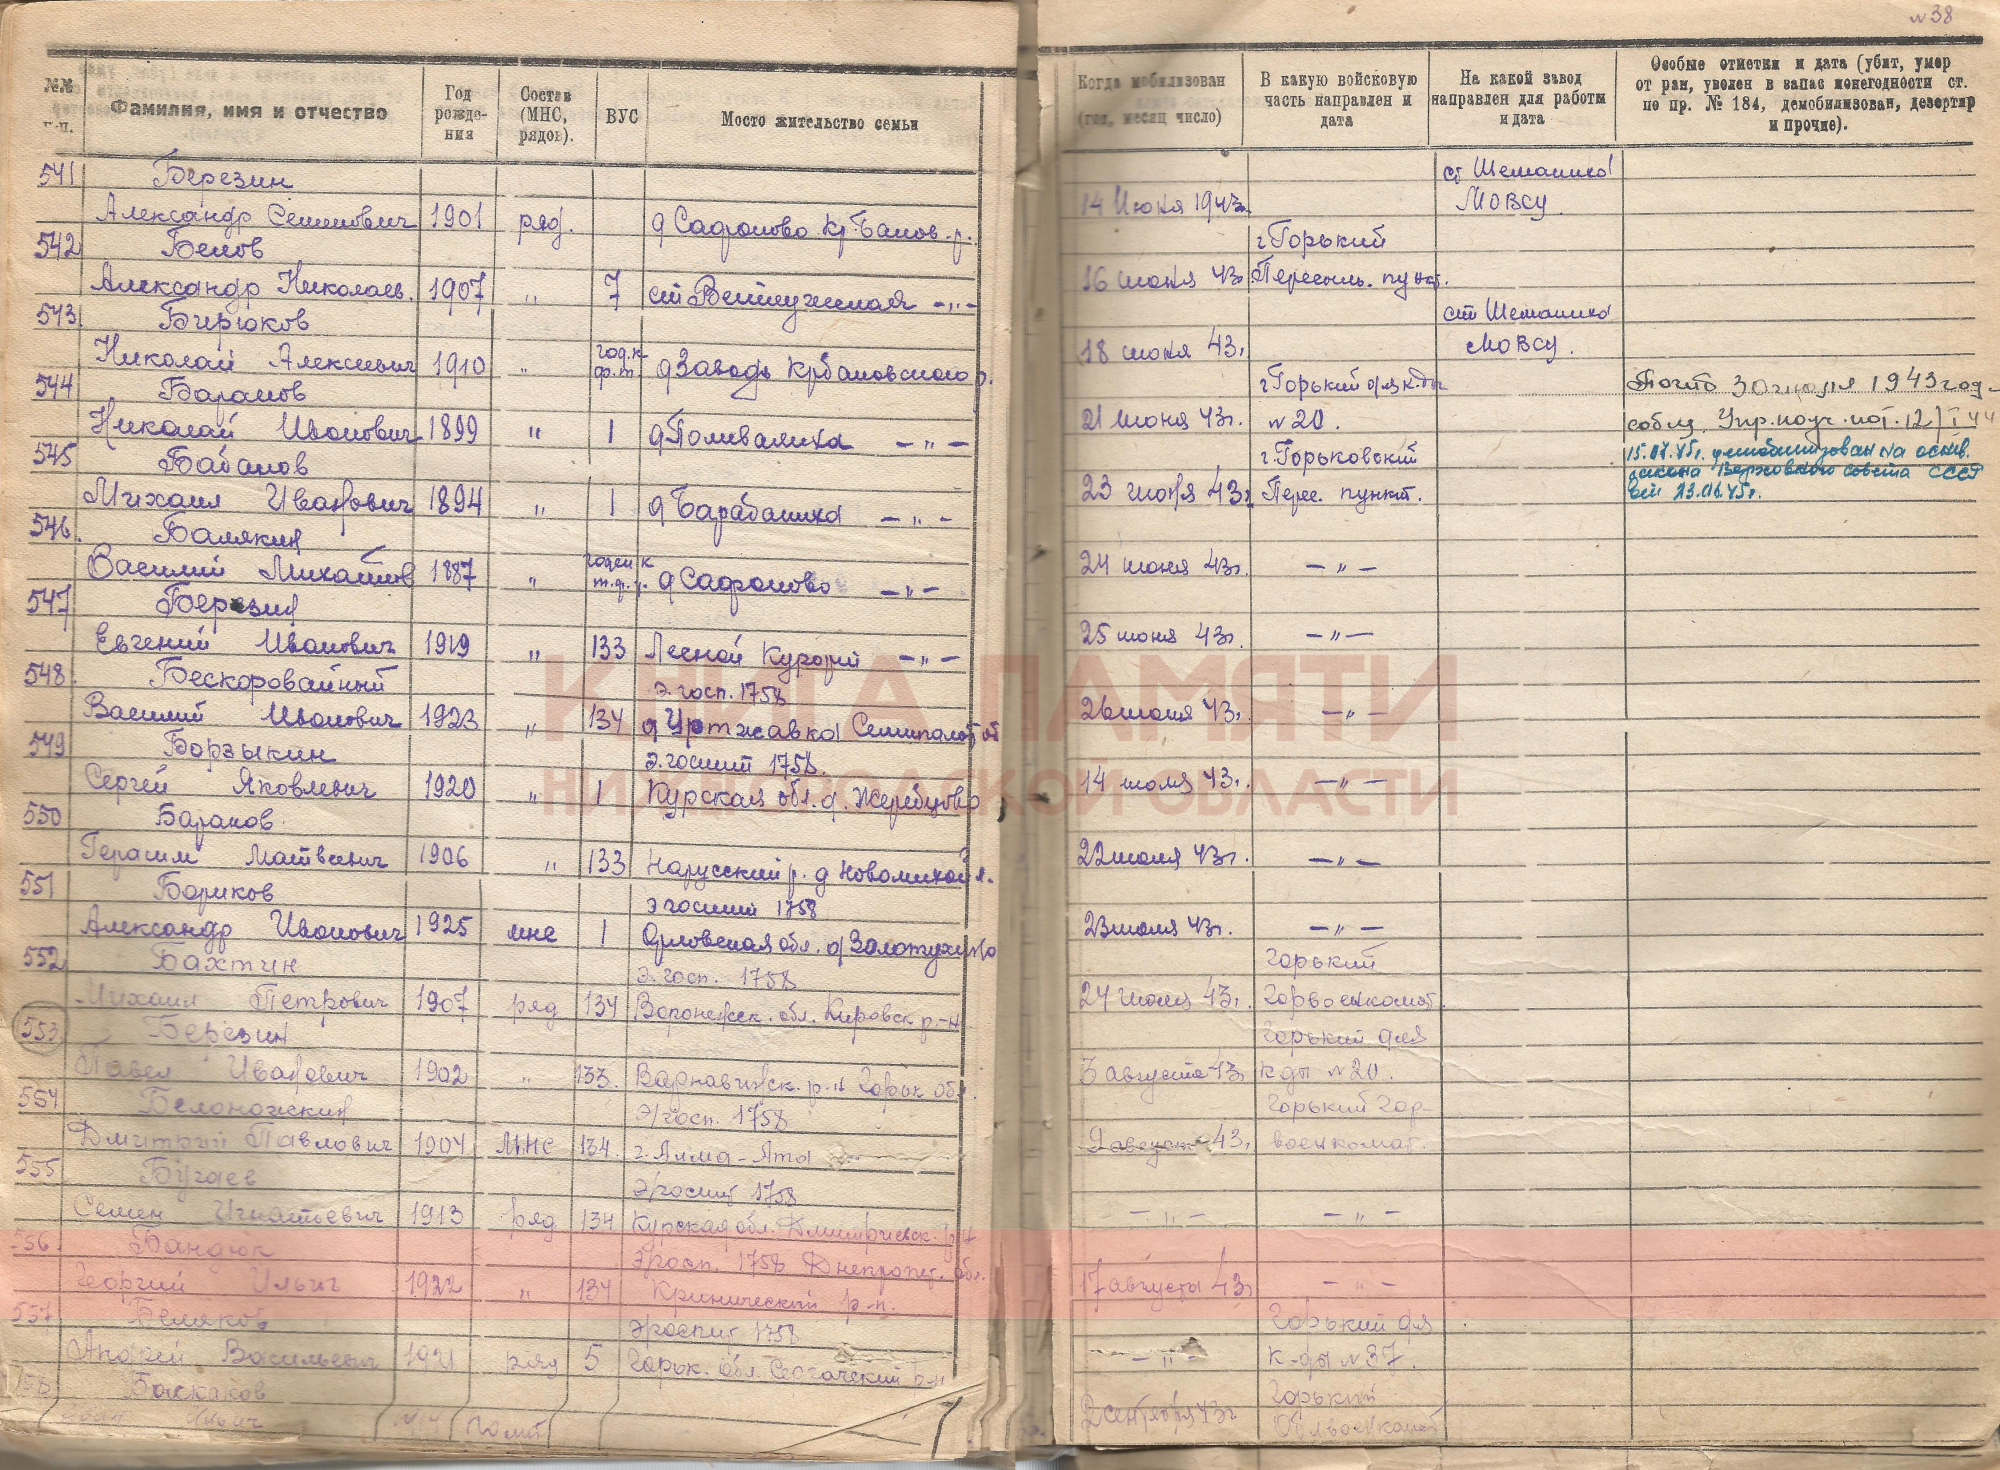 № 38
№№ п.п.
Фамилия, имя и отчество
Год рожде-ния
Состав (МНС, рядов).
ВУС
Место жительство семьи
Когда мобилизован (год, месяц число)
В какую войсковую часть направлен и дата
На какой завод направлен для работы и дата
Особые отметки и дата (убит, умер от ран, уволен в запас понегодности ст. по пр. № 184, демобилизован, дезертир и прочие).
541 Березин
ст Шеманиха
Александр Семенович 1901 ряд. д Сафоново Кр-Баков. р.
14 Июня 1943г. МОВСУ
542 Белов
г Горький
Александр Николаев. 1907 " 7 ст Ветлужская -"-
16 июня 43г Пересыль. пункт.
543 Бирюков
ст Шеманиха
Николай Алексеевич 1910 " год. к ф.т. д Заводь Крбаковского р.
18 июня 43г МОВСУ.
544 Баранов
г Горький для к-ды
Николай Иванович 1899 " 1 д Поливаниха -"-
21 июня 43г. № 20.
Погиб 30 июля 1943 год
545 Бабанов
г. Горьковский
15.07.45г. демобилизован на основ. закона Верховного совета СССР от 23.06.45г.
Михаил Иванович 1894 " 1 д Барабаниха -"-
23 июня 43г Перес. пункт.
546. Балякин
Василий Михайлов 1887 " годен к т. ф. р. д Сафоново -"-
24 июня 43г. -"-
547 Березин
Евгений Иванович 1919 " 133 Лесной Курорт -"-
25 июня 43г. -"-
548. Бескоровайный
Э. госп. 1758
Василий Иванович 1923 " 134 д Уртжавка Семипалат об
26 июня 43г. -"-
549 Борзыкин
Э. госпит 1758.
Сергей Яковлевич 1920 " 1 Курская обл. д. Жеребцово
14 июля 43г. -"-
550 Баранов
Герасим Матвеевич 1906 " 133 Нарусский р. д Новомихайл.
22 июля 43г. -"-
551 Бориков
Э госпит 1758
Александр Иванович 1925 мнс 1 Орловская обл. д Золотухино
23 июля 43г. -"-
552 Бахтин
Э. госп. 1758
Горький
Михаил Петрович 1907 ряд 134 Воронежск. обл. Кировск р-н
24 июля 43г. Горвоенкомат.
553 Березин
Горький для
Павел Иванович 1902 " 133. Варнавинск. р-н Горьк обл.
3 августа 43г к-ды № 20.
554 Белоножкин
Э/госп. 1758
Горький Гор-
Дмитрий Павлович 1904 МНС 134. г. Алма-Ата
9 август 43г военкомат.
555 Бугаев
Э/госпит 1758
Семен Игнатьевич 1913 ряд 134 Курская обл. Дмитриевск. р-н
-"- -"-
556. Бандюк
Э/госп. 1758 Днепропет. обл.
Георгий Ильич 1922 " 134 Кринический р-н.
17 августа 43г -"-
557 Беляков
Э/госпит 1758
Горький для
Андрей Васильевич 1921 ряд 5 Горьк. обл. Сергачский р-н
-"- к-ды № 37.
Баскаков
Горький
Иван Ильич
2 сентября 43г Облвоенкомат
КНИГА ПАМЯТИ
НИЖЕГОРОДСКОЙ ОБЛАСТИ